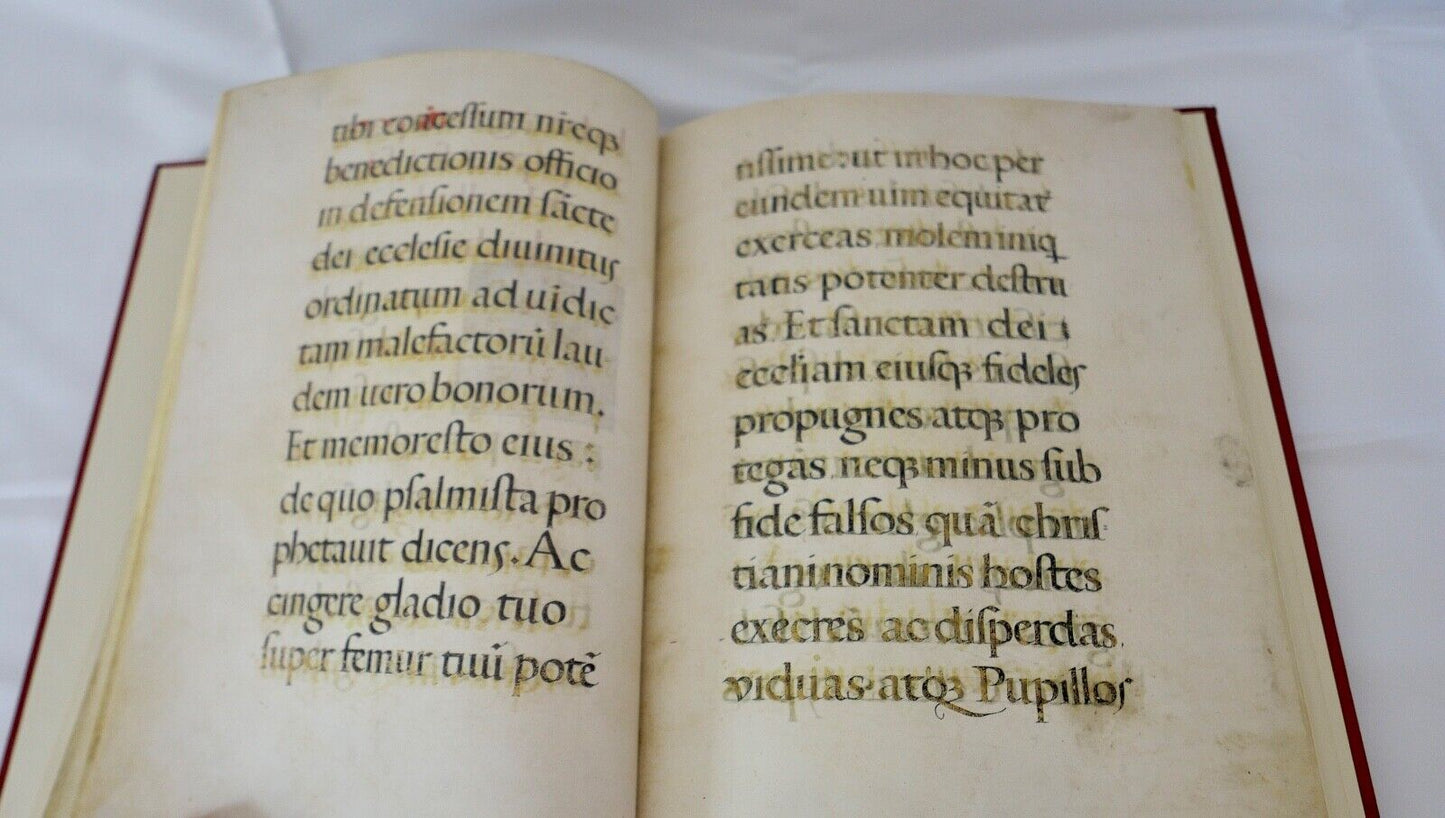 tibi concessum nr̄eqꝫ
benedictionis officio
in defensionem sācte
dei ecclesie diuinitus
ordinatum ad uidic
tam malefactorū lau-
dem uero bonorum.
Et memoresto eius :
de quo psalmista pro
phetauit dicens. Ac
cingere gladio tuo
super femur tuū potē
tissime: ut in hoc per
eundem uim equitat
exerceas molem iniq
tatis potenter destru
as. Et sanctam dei
eccliam eiusqꝫ fideles
propugnes atqꝫ pro
tegas neqꝫ minus sub
fide falsos quā chris
tiani nominis hostes
execres ac disperdas.
viduas atqꝫ Pupillos